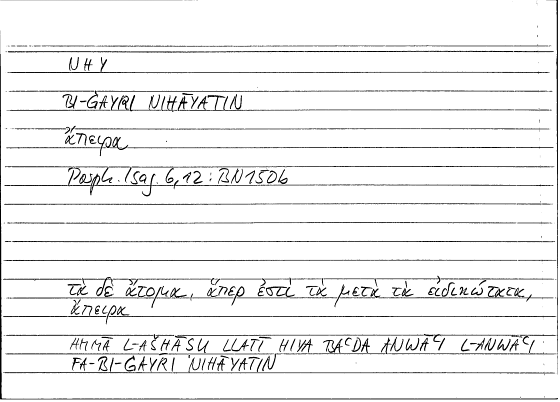 NHY
BI-ĠAYRI NIHĀYATIN
ἄπειρα
Porph. Isag. 6,12 : BN150b
τὰ δὲ ἄτομα, ἅπερ ἐστὶ τὰ μετὰ τὰ εἰδικώτατα,
ἄπειρα
AMMĀ L-AŠḪĀṢU LLATĪ HIYA BAʿDA ANWĀʿI L-ANWĀʿI
FA-BI-ĠAYRI NIHĀYATIN